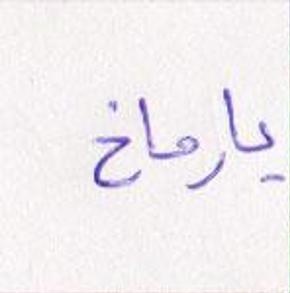 یارماخ